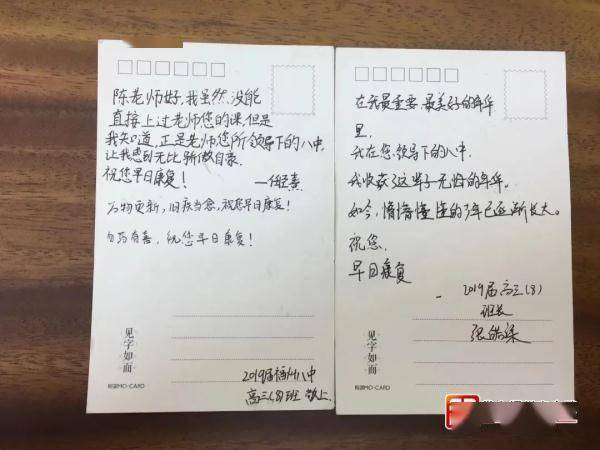 陈老师好，我虽然没能
直接上过老师您的课，但是
我知道，正是老师您所领导下的八中
让我感到无比骄傲自豪。
祝您早日康复！
万物更新，旧疾当愈，祝您早日康复！
勿药有喜，祝您早日康复！
见字如面
MO-CARD
2019届福州八中
高三（8）班 敬上
在我最重要、最美好的年华
里，
我在您领导下的八中，
我收获了这辈子无悔的年华。
如今，懵懵懂懂的少年已逐渐长大。
祝您，
早日康复
2019届高三（8）
班长
见字如面
MO-CARD